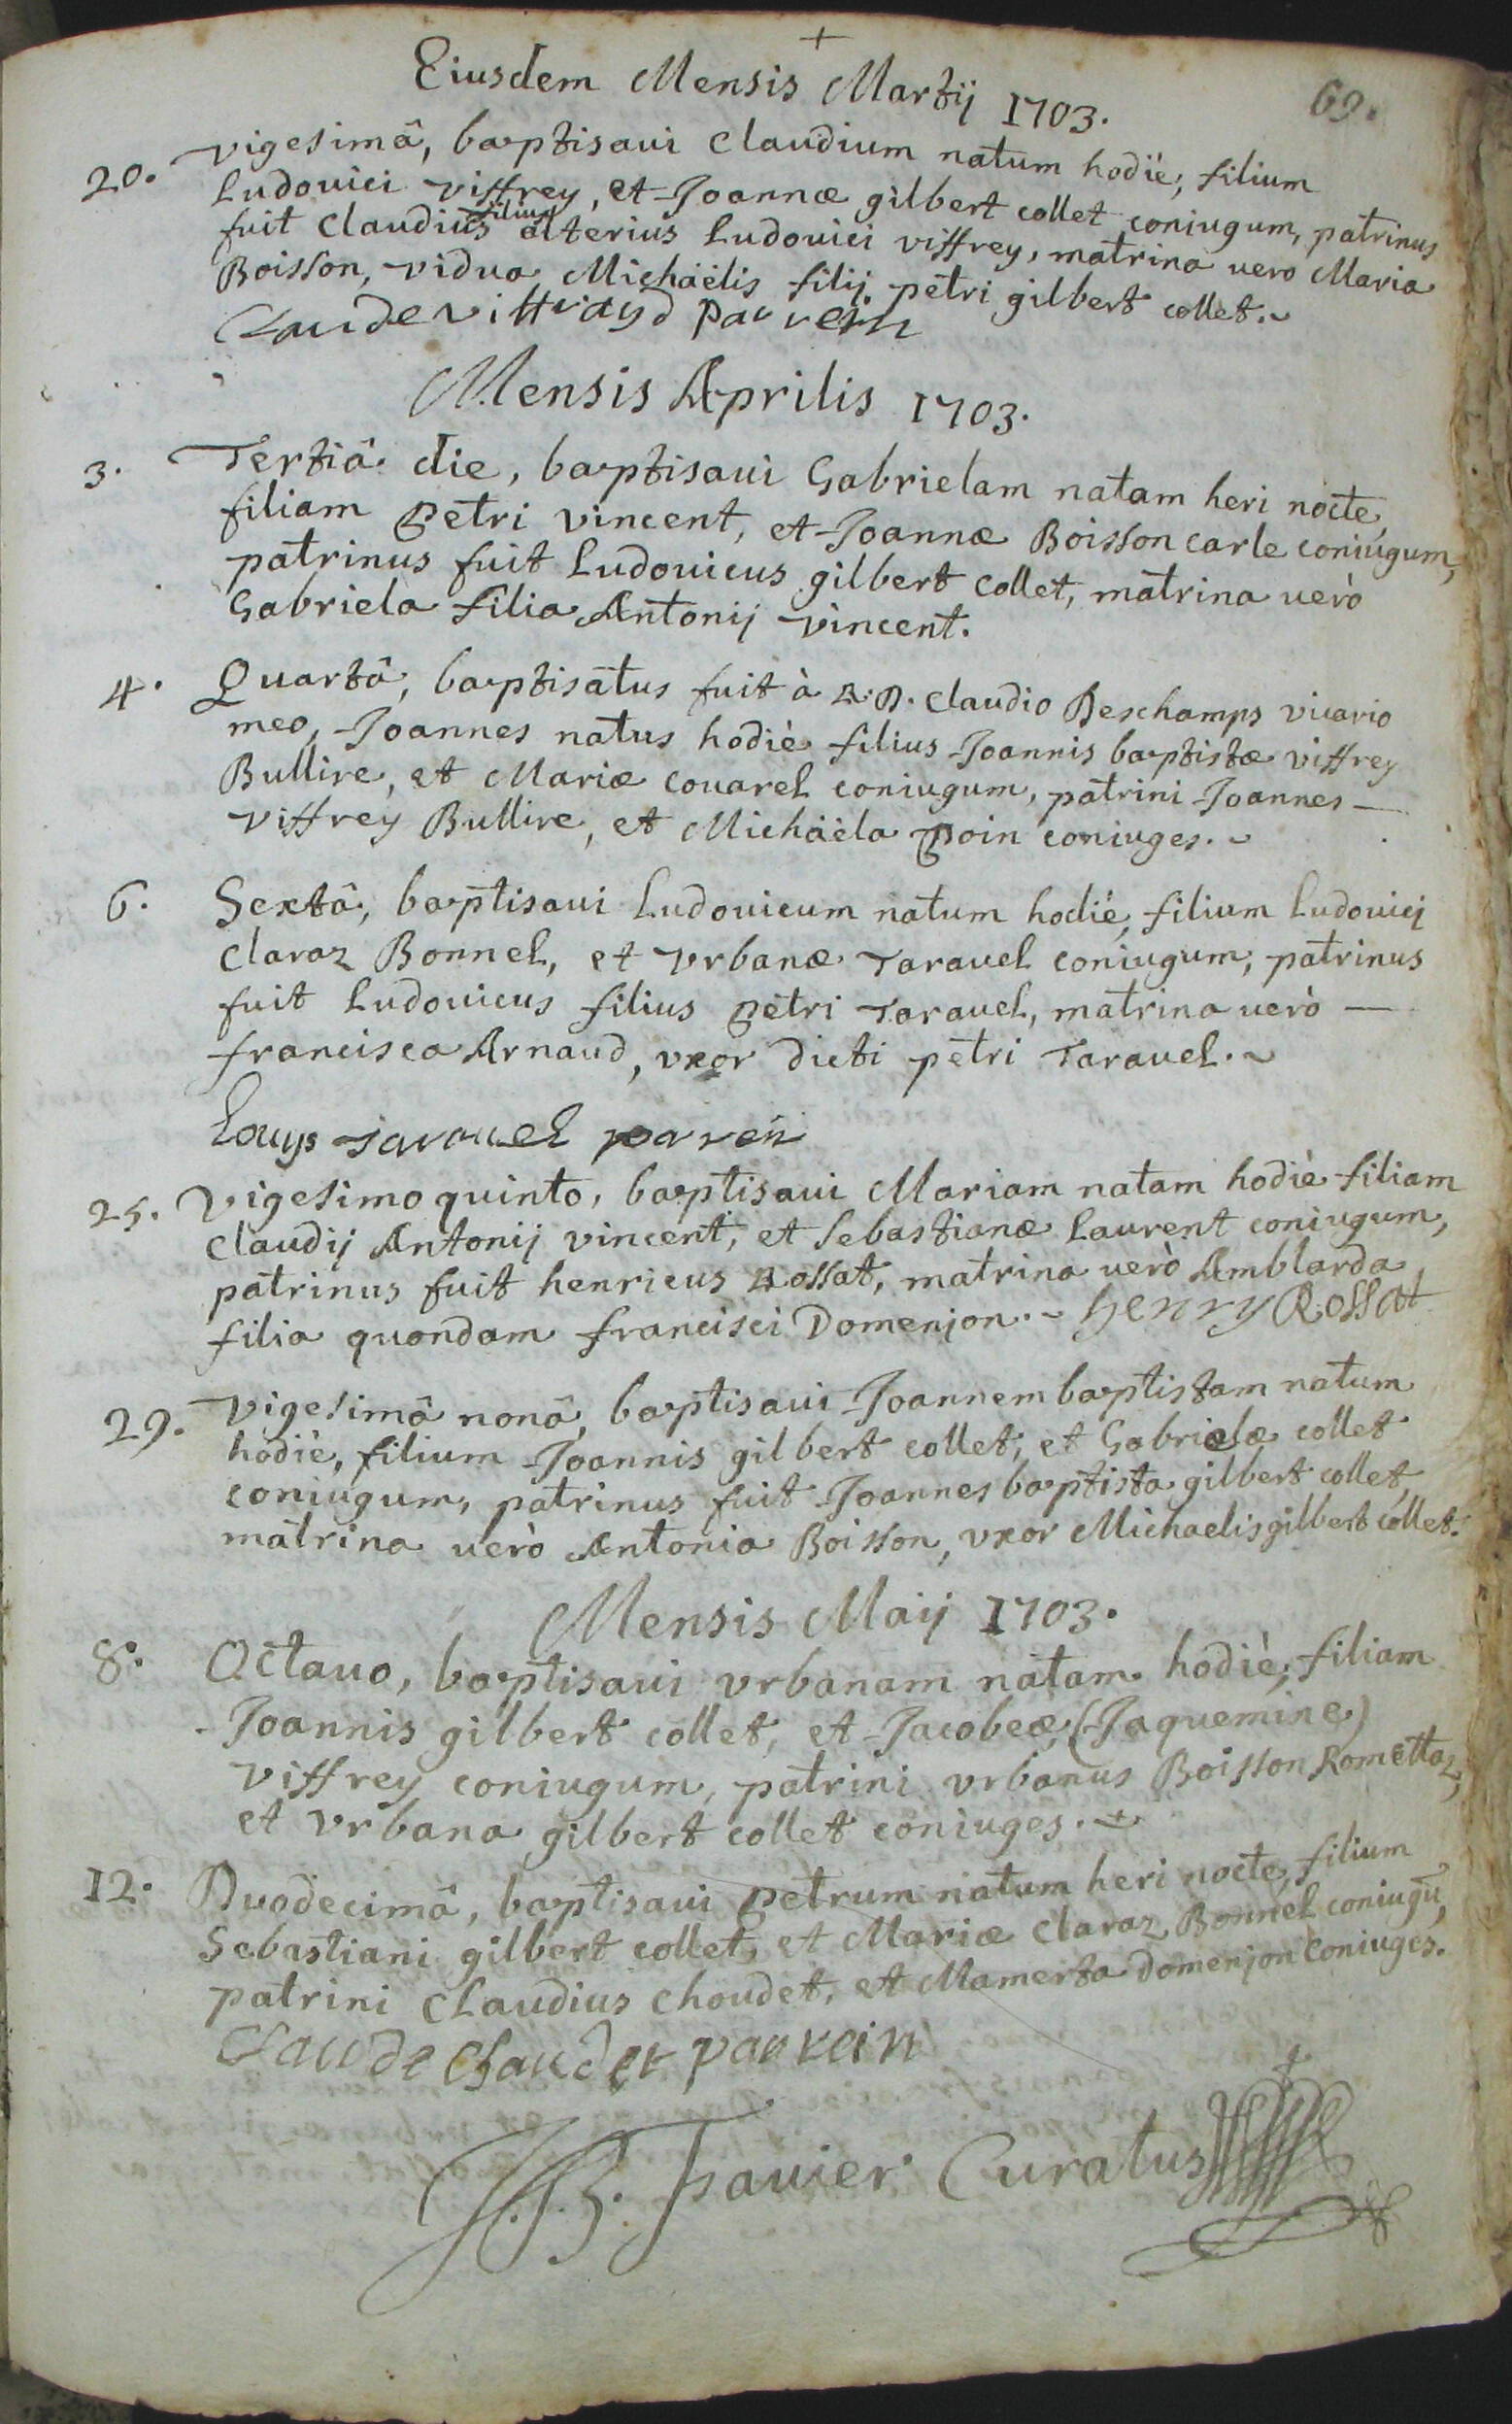 +
Eiusdem Mensis Martij 1703.
69.
20. vigesimâ, baptisaui Claudium natum hodiè, filium
Ludouici viffrey, et Joannæ gilbert collet coniugum, patrinus
fuit Claudius filius alterius Ludouici viffrey, matrina uero Maria
Boisson, vidua Michäelis filij petri gilbert collet.~
Claude viffray parrein
Mensis Aprilis 1703.
3. Tertiâ die, baptisaui Gabrielam natam heri nocte,
filiam Petri vincent, et Joannæ Boisson carle coniugum,
patrinus fuit Ludouicus gilbert collet, matrina uerò
Gabriela filia Antonij vincent.
4. Quartâ, baptisatus fuit à R.D. Claudio Deschamps vicario
meo, Joannes natus hodiè filius Joannis baptistæ viffrey
Bullire, et Mariæ couarel coniugum, patrini Joannes —
viffrey Bullire, et Michäela Poin coniuges.~
6. Sextâ, baptisaui Ludouicum natum hodiè, filium Ludouicj
Claraz Bonnel, et vrbanæ Tarauel coniugum, patrinus
fuit Ludouicus filius Petri Tarauel, matrina uerò —
francisca Arnaud, vxor dicti petri Tarauel.~
Louys tarauel parein
25. Vigesimo quinto, baptisaui Mariam natam hodiè filiam
Claudij Antonij vincent, et Sebastianæ Laurent coniugum,
patrinus fuit henricus Rossat, matrina uerò Amblarda
filia quondam francisci Domenjon.~ henry Rossat
29. Vigesimâ nonâ, baptisaui Joannem baptistam natum
hodiè, filium Joannis gilbert collet, et Gabrielæ collet
coniugum, patrinus fuit Joannes baptista gilbert collet,
matrina uerò Antonia Boisson, vxor Michaelis gilbert collet.
Mensis Maij 1703.
8. Octauo, baptisaui vrbanam natam hodiè, filiam
Joannis gilbert collet, et Jacobeæ (Jaquemine)
viffrey coniugum, patrini vrbanus Boisson Romettaz,
et vrbana gilbert collet coniuges.~
12. Duodecimâ, baptisaui Petrum natum heri nocte, filium
Sebastiani gilbert collet, et Mariæ Claraz Bonnel coniugū,
patrini Claudius Choudet, et Mamerta Domenjon coniuges.
Claude Chaudet parrein
Favier Curatus